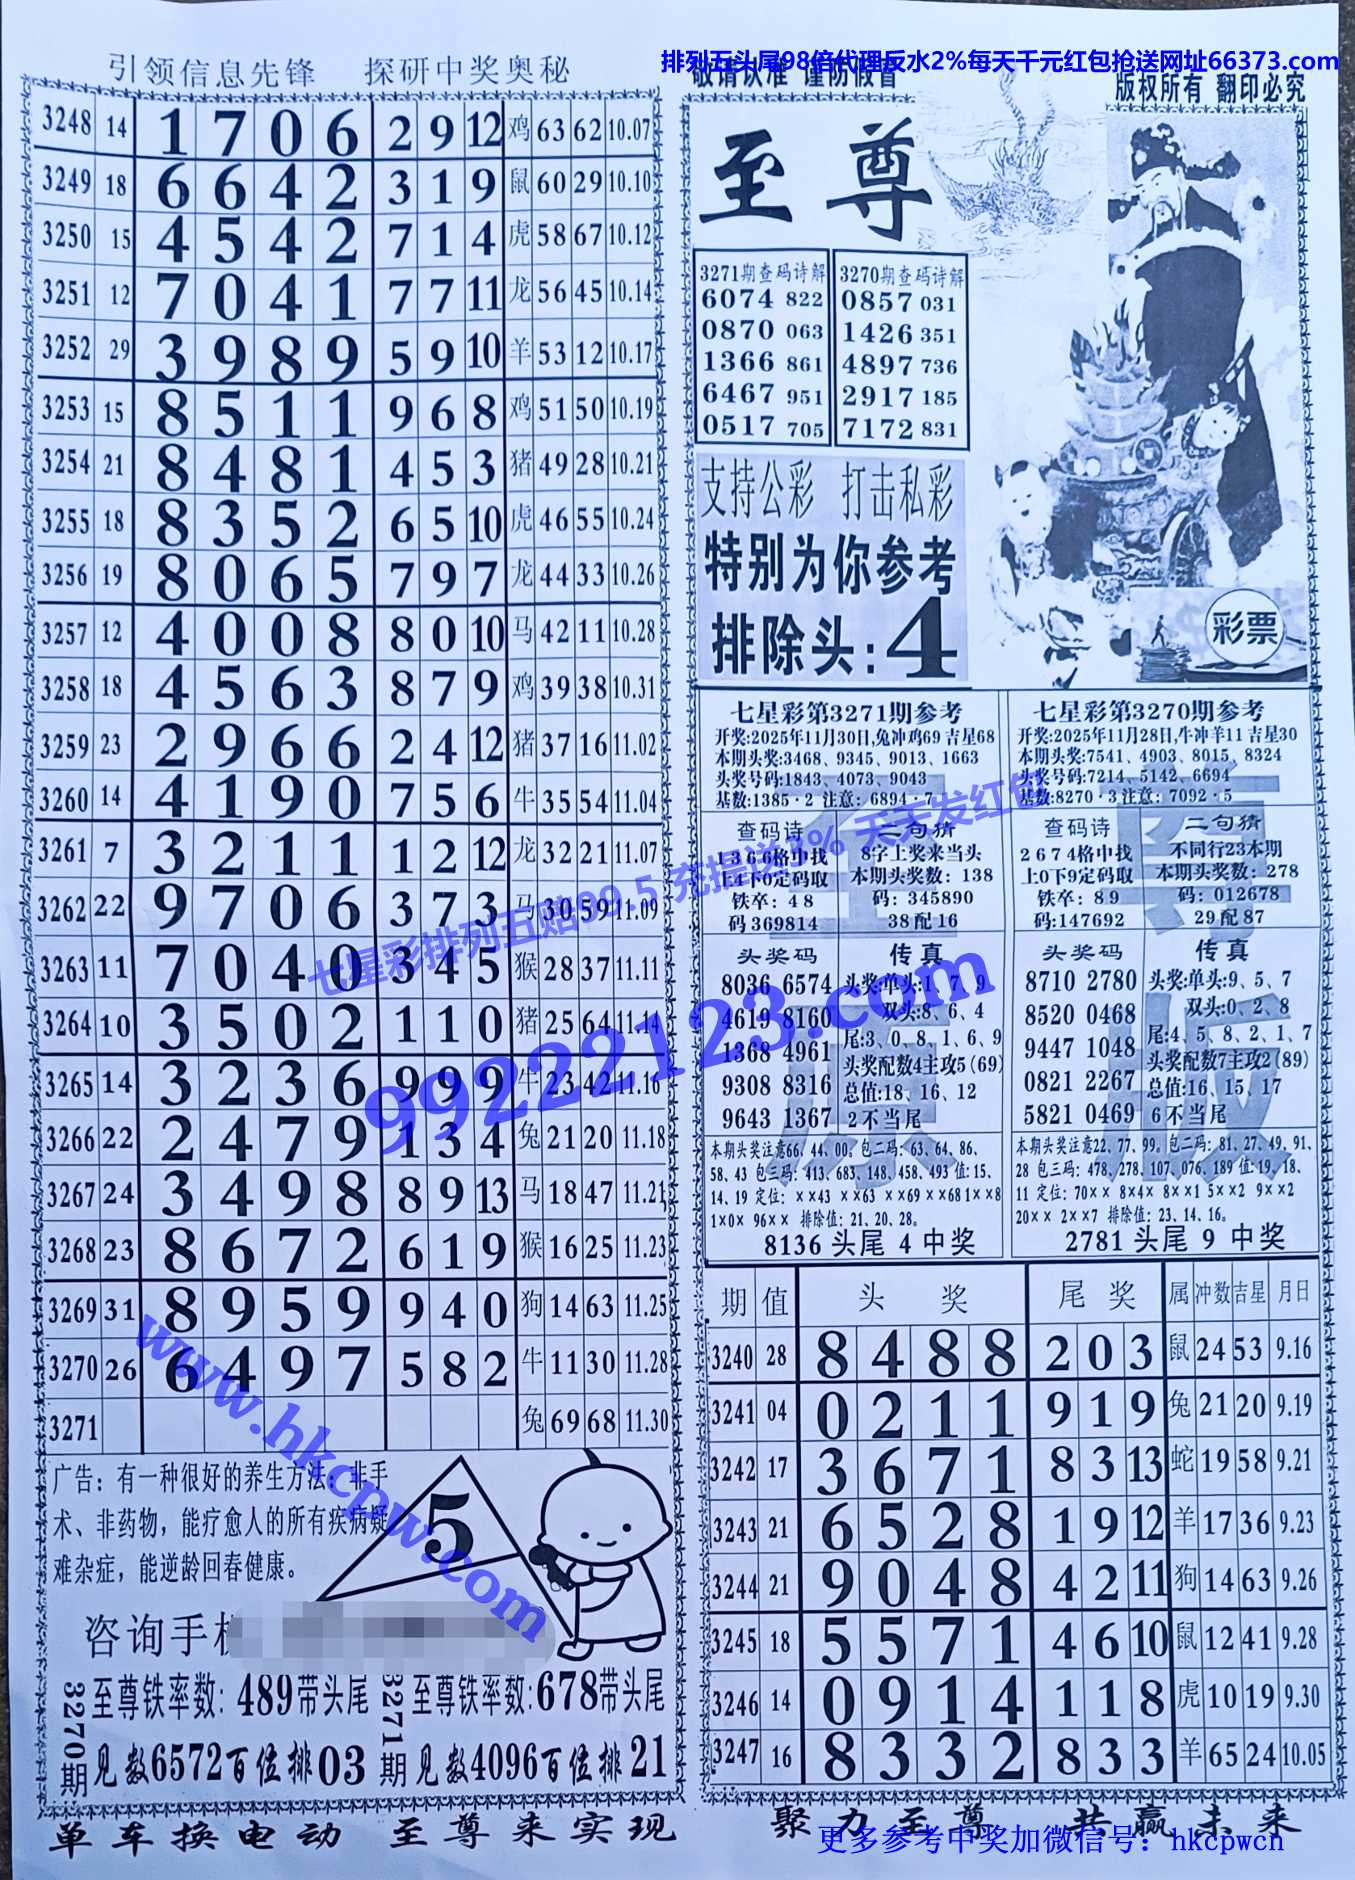 排列五头尾98倍代理反水2%每天千元红包抢送网址66373.com
引领信息先锋 探研中奖奥秘
敬请认准 谨防假冒
版权所有 翻印必究
3248 14 1 7 0 6 2 9 12 鸡 63 62 10.07
3249 18 6 6 4 2 3 1 9 鼠 60 29 10.10
3250 15 4 5 4 2 7 1 4 虎 58 67 10.12
3251 12 7 0 4 1 7 7 11 龙 56 45 10.14
3252 29 3 9 8 9 5 9 10 羊 53 12 10.17
3253 15 8 5 1 1 9 6 8 鸡 51 50 10.19
3254 21 8 4 8 1 4 5 3 猪 49 28 10.21
3255 18 8 3 5 2 6 5 10 虎 46 55 10.24
3256 19 8 0 6 5 7 9 7 龙 44 33 10.26
3257 12 4 0 0 8 8 0 10 马 42 11 10.28
3258 18 4 5 6 3 8 7 9 鸡 39 38 10.31
3259 23 2 9 6 6 2 4 12 猪 37 16 11.02
3260 14 4 1 9 0 7 5 6 牛 35 54 11.04
3261 7 3 2 1 1 1 2 12 龙 32 21 11.07
3262 22 9 7 0 6 3 7 3 马 30 59 11.09
3263 11 7 0 4 0 3 4 5 猴 28 37 11.11
3264 10 3 5 0 2 1 1 0 猪 25 64 11.14
3265 14 3 2 3 6 9 9 9 牛 23 42 11.16
3266 22 2 4 7 9 1 3 4 兔 21 20 11.18
3267 24 3 4 9 8 8 9 13 马 18 47 11.21
3268 23 8 6 7 2 6 1 9 猴 16 25 11.23
3269 31 8 9 5 9 9 4 0 狗 14 63 11.25
3270 26 6 4 9 7 5 8 2 牛 11 30 11.28
3271 兔 69 68 11.30
广告：有一种很好的养生方法：非手
术、非药物，能疗愈人的所有疾病疑
难杂症，能逆龄回春健康。
咨询手机
5
3270期
至尊铁率数：489带头尾
见数6572百位排03
3271期
至尊铁率数：678带头尾
见数4096百位排21
单车换电动 至尊来实现
至尊
3271期查码诗解
6074 822
0870 063
1366 861
6467 951
0517 705
3270期查码诗解
0857 031
1426 351
4897 736
2917 185
7172 831
支持公彩 打击私彩
特别为你参考
排除头：4
彩票
七星彩第3271期参考
开奖:2025年11月30日,兔冲鸡69 吉星68
本期头奖:3468、9345、9013、1663
头奖号码:1843、4073、9043
基数:1385·2 注意：6894·7
查码诗
1366格中找
上4下0定码取
铁卒：48
码369814
二句猜
8字上奖来当头
本期头奖数：138
码：345890
38配16
头奖码
8036 6574
4619 8160
1368 4961
9308 8316
9643 1367
传真
头奖:单头:1、7、9
双头:8、6、4
尾:3、0、8、1、6、9
头奖配数4主攻5(69)
总值:18、16、12
2不当尾
本期头奖注意66、44、00。包二码：63、64、86、
58、43 包三码：413、683、148、458、493 值:15、
14、19 定位：××43 ××63 ××69 ××68 1××8
1×0× 96×× 排除值：21、20、28。
8136 头尾 4 中奖
七星彩第3270期参考
开奖:2025年11月28日,牛冲羊11 吉星30
本期头奖:7541、4903、8015、8324
头奖号码:7214、5142、6694
基数:8270·3 注意：7092·5
查码诗
2674格中找
上0下9定码取
铁卒：89
码:147692
二句猜
不同行23本期
本期头奖数：278
码：012678
29配87
头奖码
8710 2780
8520 0468
9447 1048
0821 2267
5821 0469
传真
头奖:单头:9、5、7
双头:0、2、8
尾:4、5、8、2、1、7
头奖配数7主攻2(89)
总值:16、15、17
6不当尾
本期头奖注意22、77、99。包二码：81、27、49、91、
28 包三码：478、278、107、076、189 值:19、18、
11 定位：70×× 8×4× 8××1 5××2 9××2
20×× 2××7 排除值：23、14、16。
2781 头尾 9 中奖
至尊原版
期 值 头奖 尾奖 属 冲数 吉星 月日
3240 28 8 4 8 8 2 0 3 鼠 24 53 9.16
3241 04 0 2 1 1 9 1 9 兔 21 20 9.19
3242 17 3 6 7 1 8 3 13 蛇 19 58 9.21
3243 21 6 5 2 8 1 9 12 羊 17 36 9.23
3244 21 9 0 4 8 4 2 11 狗 14 63 9.26
3245 18 5 5 7 1 4 6 10 鼠 12 41 9.28
3246 14 0 9 1 4 1 1 8 虎 10 19 9.30
3247 16 8 3 3 2 8 3 3 羊 65 24 10.05
聚力至尊 共赢未来
更多参考中奖加微信号：hkcpwcn
七星彩排列五赔99.5 充提送3% 天天发红包
99222123.com
www.hkcpw.com